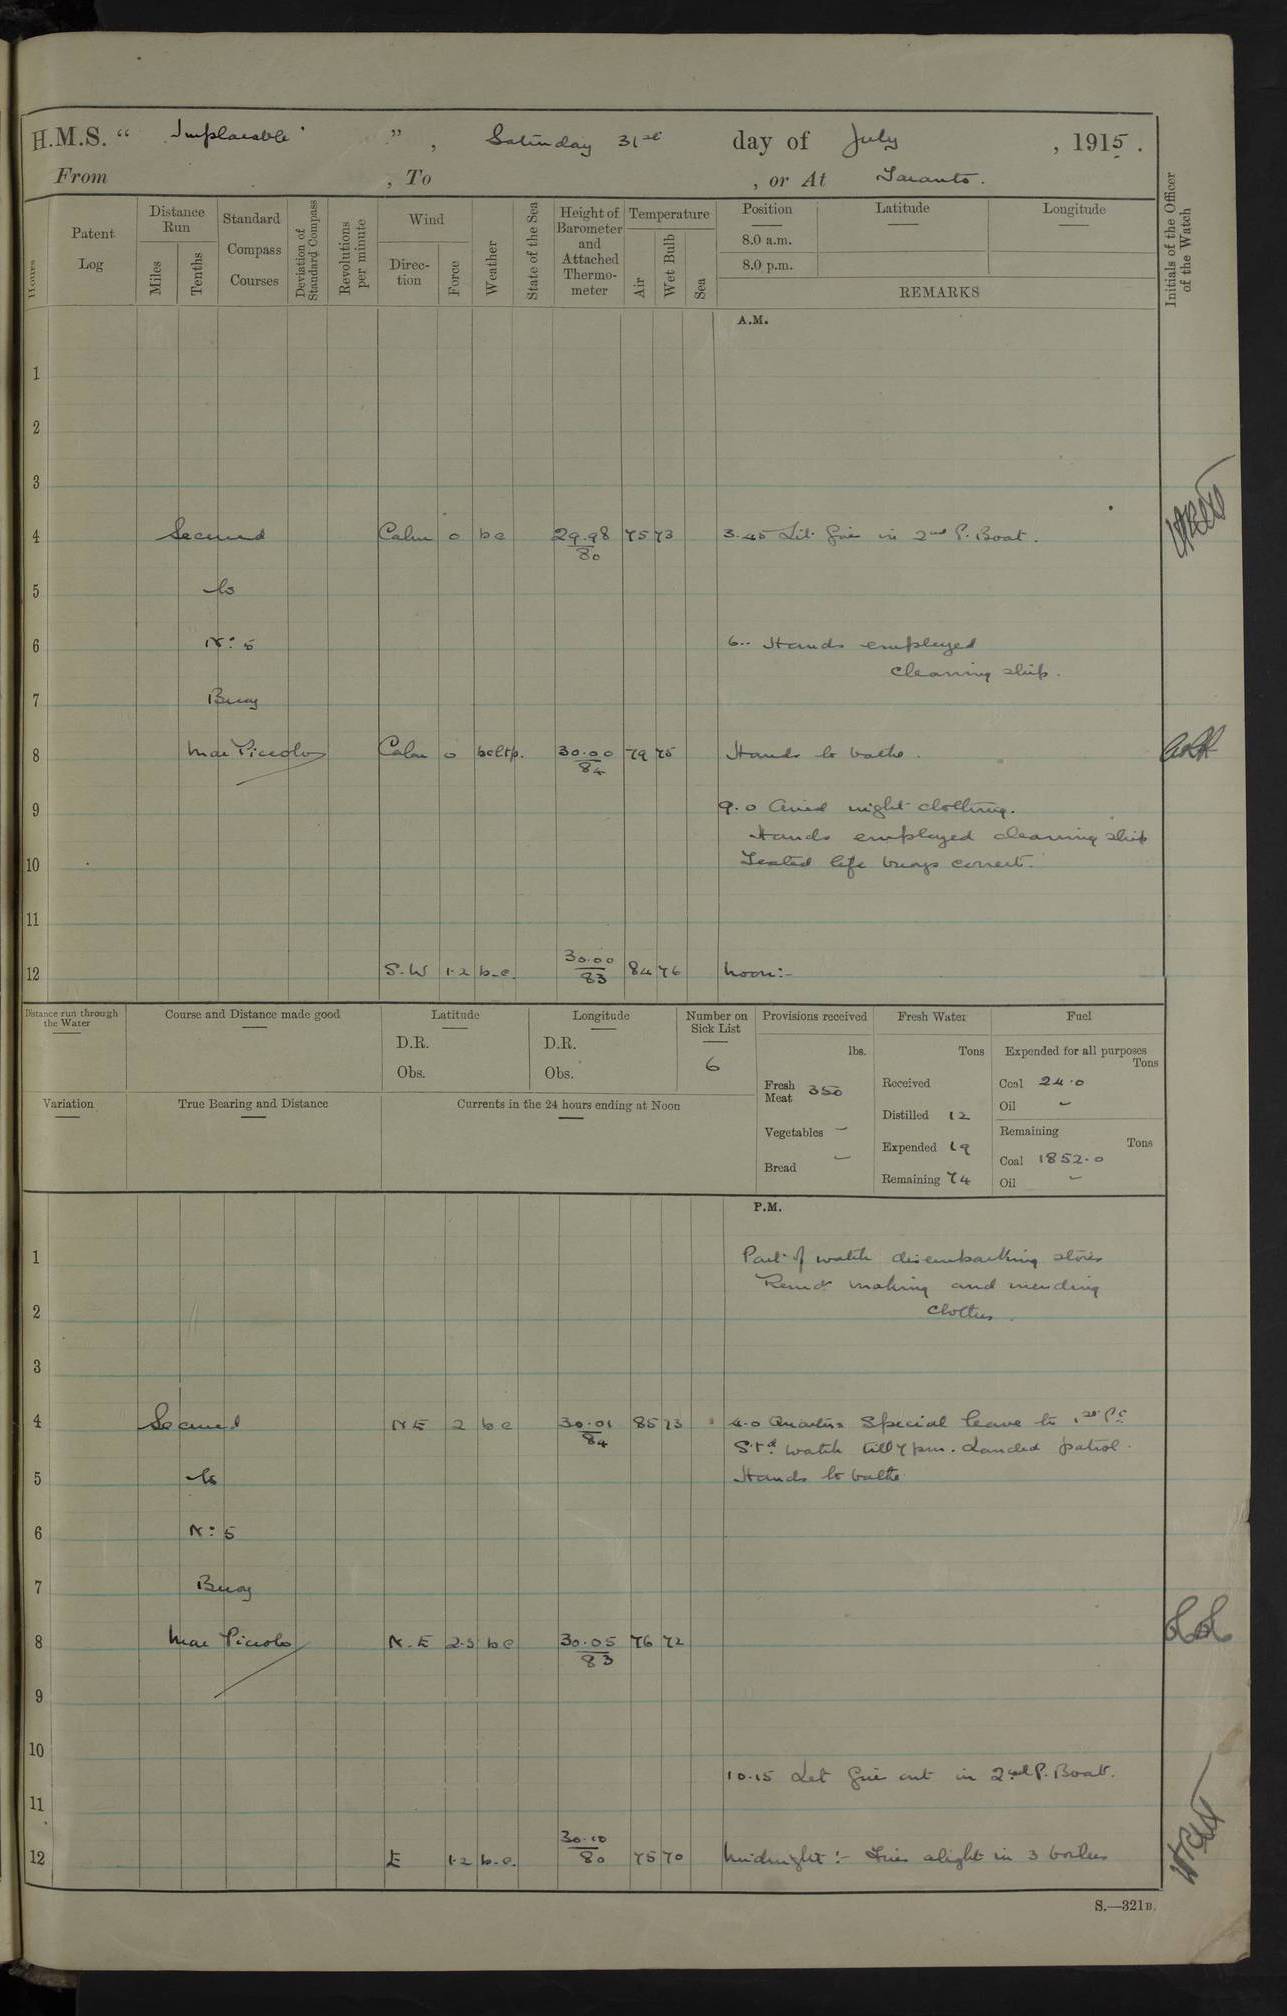 H.M.S. “ Implacable ” , Saturday 31st day of July , 1915.
From , To , or At Taranto.
Hours
Patent Log
Distance Run
Miles
Tenths
Standard Compass Courses
Deviation of Standard Compass
Revolutions per minute
Wind
Direc-tion
Force
Weather
State of the Sea
Height of Barometer and Attached Thermo-meter
Temperature
Air
Wet Bulb
Sea
Position
8.0 a.m.
8.0 p.m.
Latitude
Longitude
REMARKS
Initials of the Officer of the Watch
A.M.
1
2
3
4 Secured Calm 0 bc 29.98/80 75 73 3.45 Lit fire in 2nd P. Boat.
5 to
6 No: 5 6.. Hands employed
cleaning ship.
7 Buoy
8 Mar Piccolo Calm 0 bcltp. 30.00/84 79 75 Hands to bathe.
9 9.0 Aired night clothing.
Hands employed cleaning ship
10 Tested life buoys correct.
11
12 S.W 1.2 b.c. 30.00/83 84 76 Noon:-
Distance run through the Water
Course and Distance made good
Latitude
D.R.
Obs.
Longitude
D.R.
Obs.
Number on Sick List
6
Provisions received
lbs.
Fresh Meat 350
Vegetables –
Bread –
Fresh Water
Tons
Received
Distilled 12
Expended 19
Remaining 74
Fuel
Expended for all purposes
Tons
Coal 24.0
Oil –
Remaining
Tons
Coal 1852.0
Oil –
Variation
True Bearing and Distance
Currents in the 24 hours ending at Noon
P.M.
1 Part of watch disembarking stores
Remdr making and mending
2 clothes.
3
4 Secured N E 2 b c 30.01/84 85 73 4.0 Quarters Special leave to 1st Pt
St'd watch till 7 pm. Landed patrol.
5 to Hands to bathe
6 No: 5
7 Buoy
8 Mar Piccolo N.E 2.3 bc 30.05/83 76 72
9
10
10.15 Let fire out in 2nd P. Boat.
11
12 E 1.2 b.c. 30.10/80 75 70 Midnight:- Fires alight in 3 boilers
S.—321B.